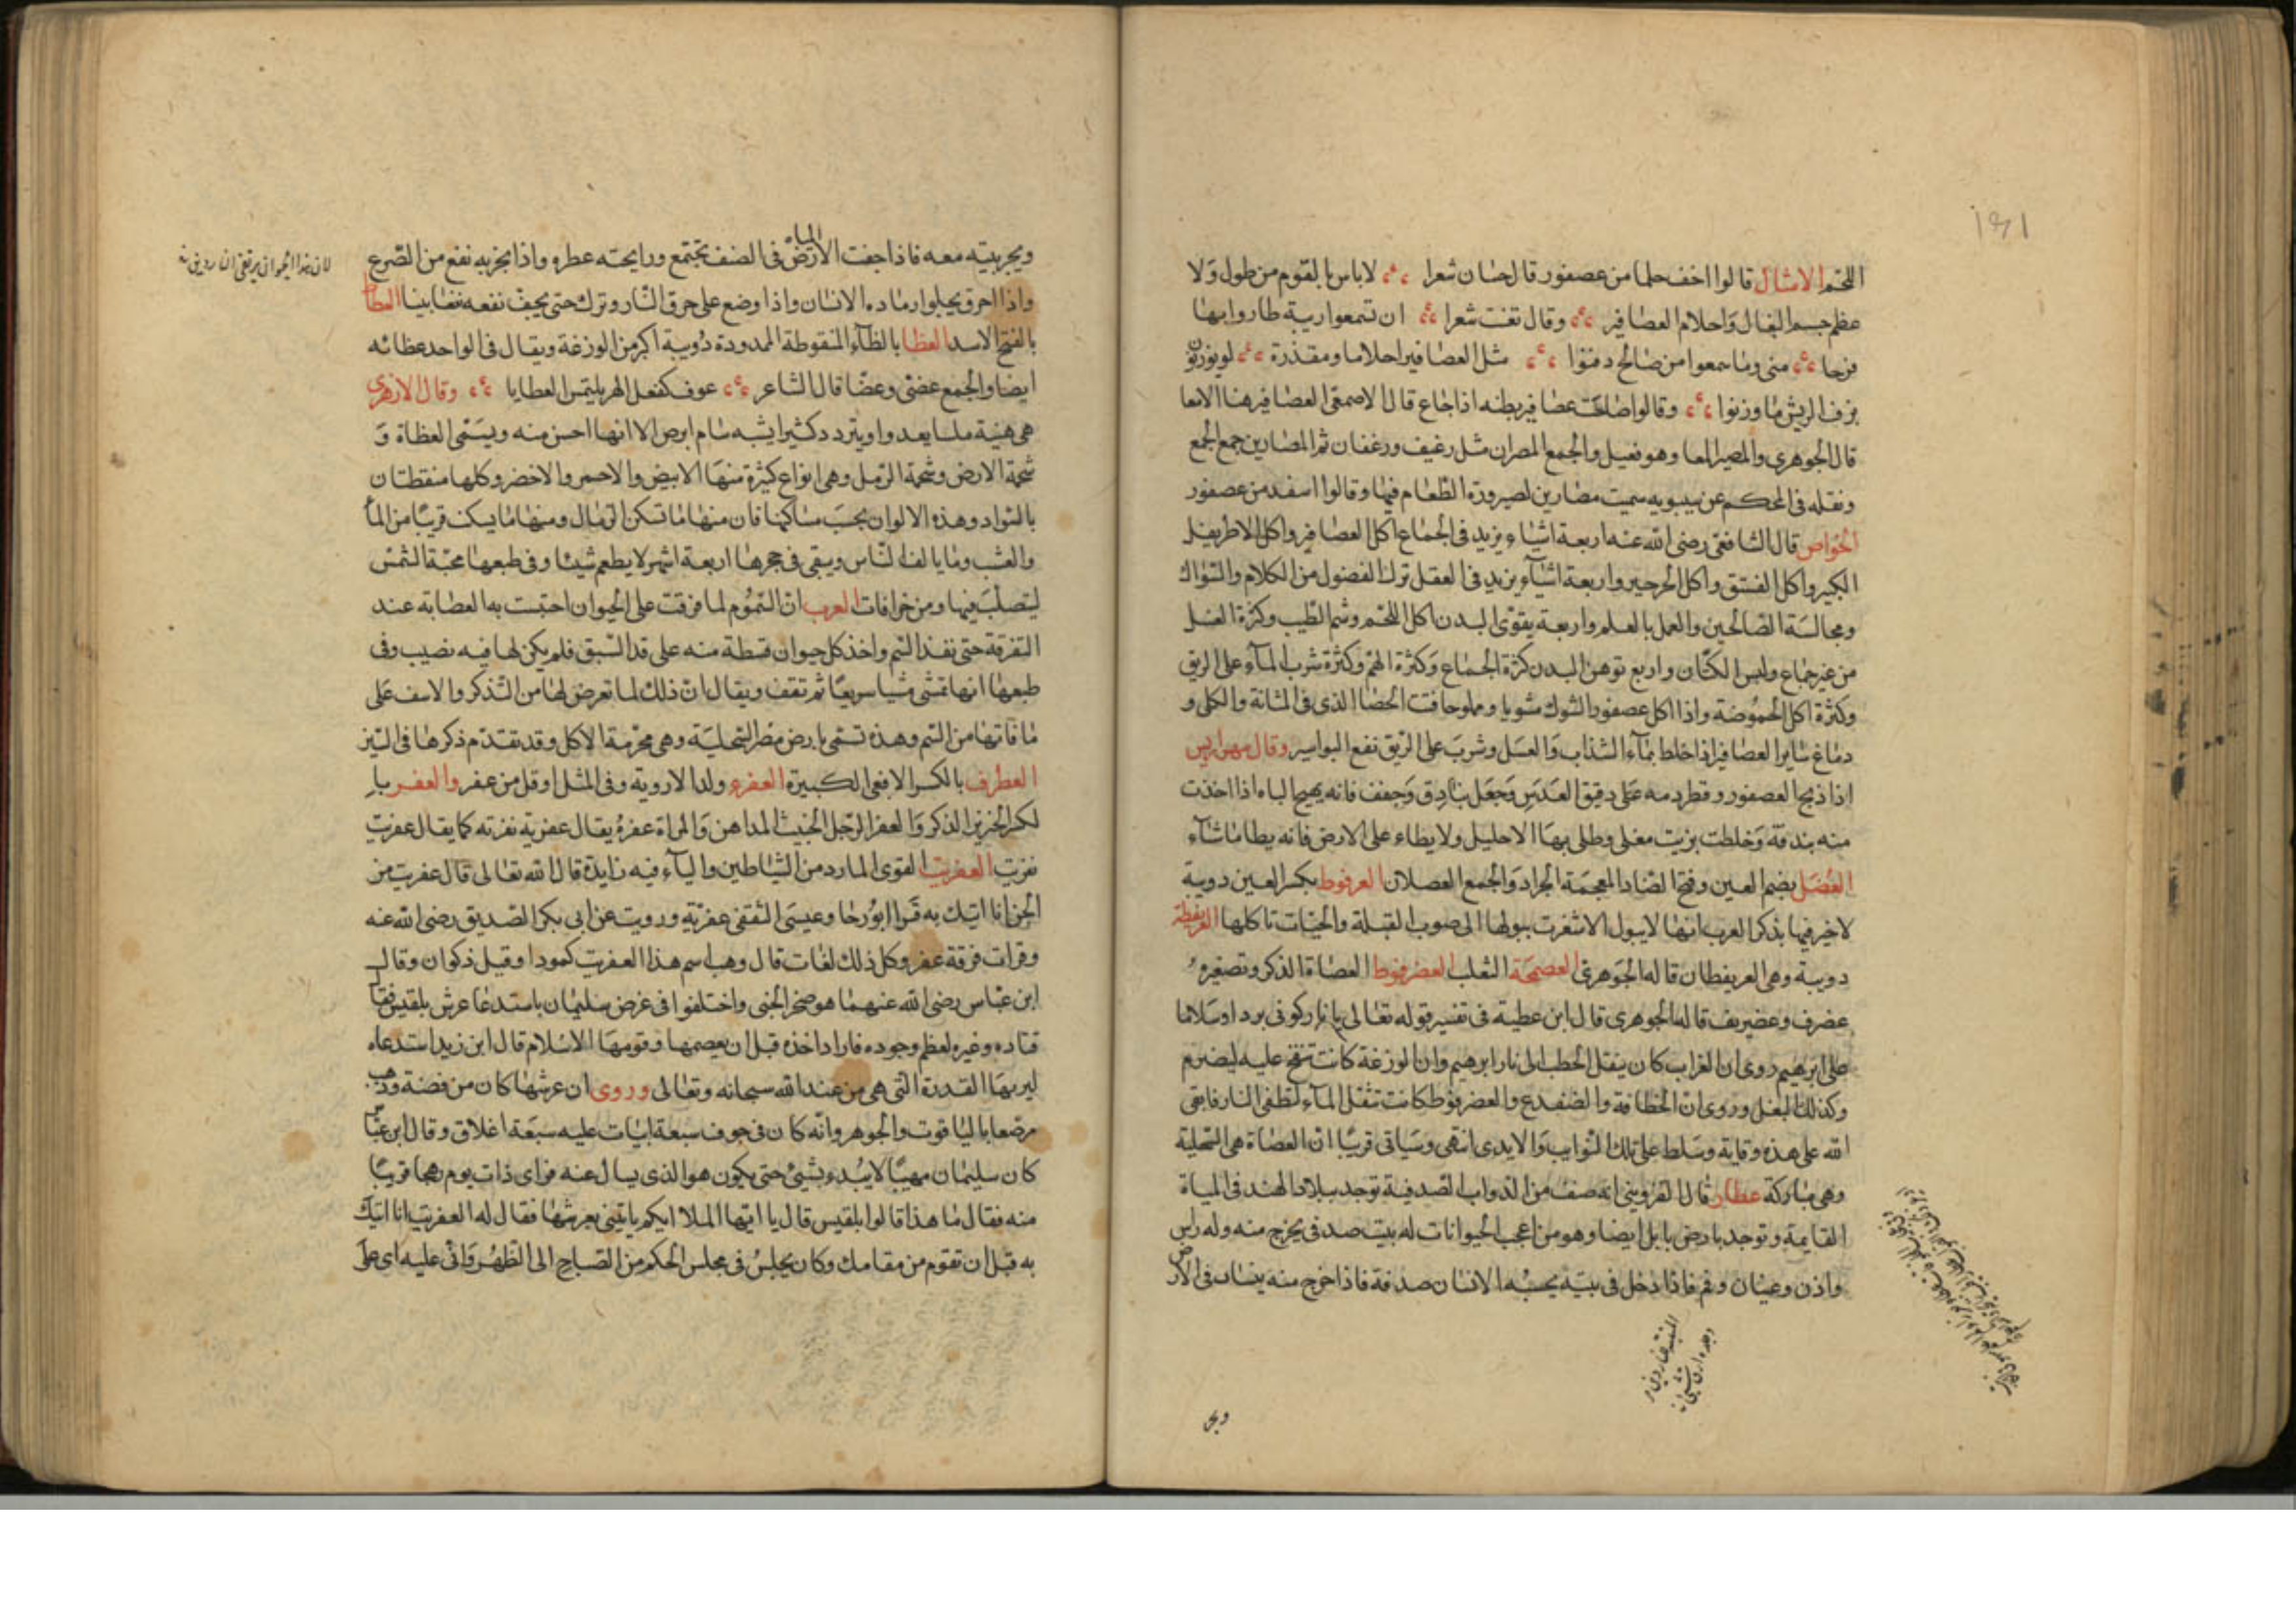 اللحم الامثال قالوا اخف حلما من عصفور قال حسان شعرا لا باس بالقوم من طول ولا
عظم جسم البغال واحلام العصافير وقال قعنب شعرا ان تسمعوا ريبة طاروا بها
فرحا منى وما سمعوا من صالح دفنوا مثل العصافير احلاما ومقدرة لو يوزنون
بزف الريش ما وزنوا وقالوا صاحت عصافير بطنه اذا جاع قال الاصمعى العصافير هنا الامعا
قال الجوهرى والمصير المعا وهو فعيل والجمع المصران مثل رغيف ورغفان ثم المصارين جمع الجمع
ونقله فى المحكم عن سيبويه سميت مصارين لصيرورة الطعام فيها وقالوا اسفد من عصفور
الخواص قال الشافعى رضى الله عنه اربعة اشياء يزيد فى الجماع اكل العصافير واكل الاطريفل
الكبير واكل الفستق واكل الجرجير واربعة اشياء يزيد فى العقل ترك الفضول من الكلام والسواك
ومجالسة الصالحين والعمل بالعلم واربعة يقوى البدن اكل اللحم وشم الطيب وكثرة الغسل
من غير جماع ولبس الكتان واربع توهن البدن كثرة الجماع وكثرة الهم وكثرة شرب الماء على الريق
وكثرة اكل الحموضة واذا اكل عصفور الشوك مشويا ومملوحا فتت الحصا الذى فى المثانة والكلى و
دماغ ساير العصافير اذا خلط بماء السذاب والعسل وشرب على الريق نفع البواسير وقال مهراريس
اذا ذبح العصفور وقطر دمه على دقيق العدس وجعل بنادق وجفف فانه يهيج الباه اذا اخذت
منه بندقة وخلطت بزيت مغلى وطلى بها الاحليل ولا يطاء على الارض فانه يطا ما شاء
العضل بضم العين وفتح الضاد المعجمة الجراد والجمع العصلان العرفوط بكسر العين دويبة
لا خير فيها يذكر العرب انها لا يبول الا شغرت ببولها الى صوب القبلة والحيات تاكلها العريفطة
دويبة وهى العريفطان قاله الجوهرى العصمجة الثعلب العضرفوط العضاة الذكر وتصغيره
عضرف وعضيريف قاله الجوهرى قال ابن عطية فى تفسير قوله تعالى يا نار كونى بردا وسلاما
على ابرهيم روى ان الغراب كان ينقل الحطب الى نار ابرهيم وان الوزغة كانت تنفخ عليه ليضرم
وكذلك البغل وروى ان الخطافة والضفدع والعضرفوط كانت تنقل الماء لتطفى النار فابقى
الله على هذه وقاية وسلط على تلك النوايب والايدى انتهى وسياتى قريبا ان العضاة هى السحلية
وهى مباركة عطار قال القزوينى انه صنف من الدواب الصدفية توجد ببلاد الهند فى المياة
القايمة وتوجد بارض بابل ايضا وهو من اعجب الحيوانات له بيت صدفى يخرج منه وله راس
واذن وعينان وفم فاذا دخل فى بيته يحسبه الانسان صدفة فاذا خرج منه ينساب فى الارض
ويجر
ويجر بيته معه فاذا جفت الارض فى الصيف تجتمع ورايحته عطره واذا بخر به نفع من الصرع
واذا احرق يجلوا رماده الاسنان واذا وضع على حرق النار وترك حتى يجف نفعه نفعا بينا العطا
بالفتح الاسد العظا بالظاء المنقوطة الممدودة دويبة اكبر من الوزغة ويقال فى الواحد عظائه
ايضا والجمع عضى وعضا قال الشاعر عوف كفعل الهر يلتمس العطايا وقال الازهرى
هى هنية ملسا يعدوا ويتردد كثيرا يشبه سام ابرص الا انها احسن منه ويسمى العظاة و
شحمة الارض وشحمة الرمل وهى انواع كثيرة منها الابيض والاحمر والاخضر وكلها منقطان
بالسواد وهذه الالوان بحسب مساكنها فان منها ما تسكن الرمال ومنها ما يسكن قريبا من الما
والعشب وما يالف الناس ويبقى فى جحرها اربعة اشهر لا يطعم شيئا وفى طبعها محبة الشمس
ليتصلب فيها ومن خرافات العرب ان السموم لما فرقت على الحيوان احتبست به العضابة عند
التفرقة حتى نفذ السم واخذ كل حيوان قسطه منه على قدر السبق فلم يكن لها فيه نصيب وفى
طبعها انها تمشى مشيا سريعا ثم تقف ويقال ان ذلك لما تعرض لها من التذكر والاسف على
ما فاتها من السم وهذه تسمى بارض مصر السحلية وهى محرمة الاكل وقد تقدم ذكرها فى السين
العطرف بالكسر الافعى الكبيرة العفرء ولد الاروية وفى المثل اوقل من عفر والعفر با
لكسر الخنزير الذكر والعفر الرجل الخبيث المداهن والمراة عفرة يقال عفرية نفرته كما يقال عفريت
نفريت العفريت القوى المارد من الشياطين والياء فيه زايدة قال الله تعالى قال عفريت من
الجن انا اتيك به قرا ابو رجا وعيسى الثقفى عفرية ورويت عن ابى بكر الصديق رضى الله عنه
وقرات فرقة عفر وكل ذلك لغات قال وهب اسم هذا العفريت كمودا وقيل ذكوان وقال
ابن عباس رضى الله عنهما هو صخر الجنى واختلفوا فى غرض سليمان باستدعا عرش بلقيس فقال
قتاده وغيره لعظم وجوده فاراد اخذه قبل ان يعصمها وقومها الاسلام قال ابن زيد استدعاه
ليريها القدرة التى هى من عند الله سبحانه وتعالى وروى ان عرشها كان من فضة وذهب
مرصعا بالياقوت والجوهر وانه كان فى جوف سبعة ابيات عليه سبعة اغلاق وقال ابن عباس
كان سليمان مهيبا لا يبدء بشئ حتى يكون هو الذى يسال عنه فراى ذات يوم رهجا قريبا
منه فقال ما هذا قالوا بلقيس قال يا ايها الملا ايكم ياتينى بعرشها فقال له العفريت انا اتيك
به قبل ان تقوم من مقامك وكان يجلس فى مجلس الحكم من الصباح الى الظهر وانى عليه اى على